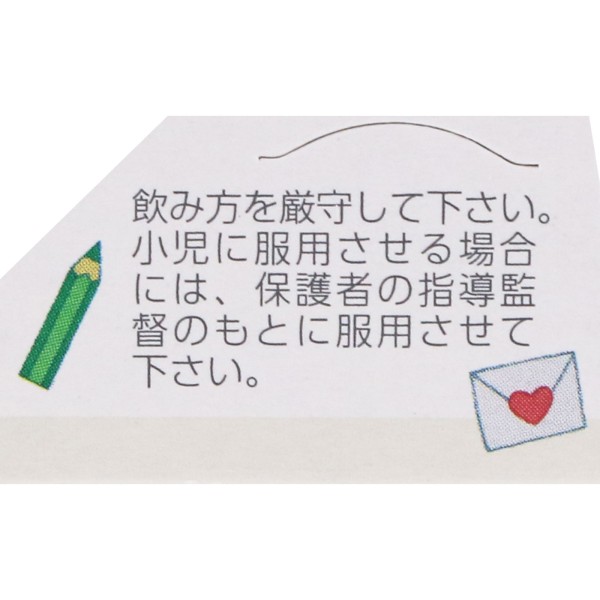 飲み方を厳守して下さい。
小児に服用させる場合
には、保護者の指導監
督のもとに服用させて
下さい。